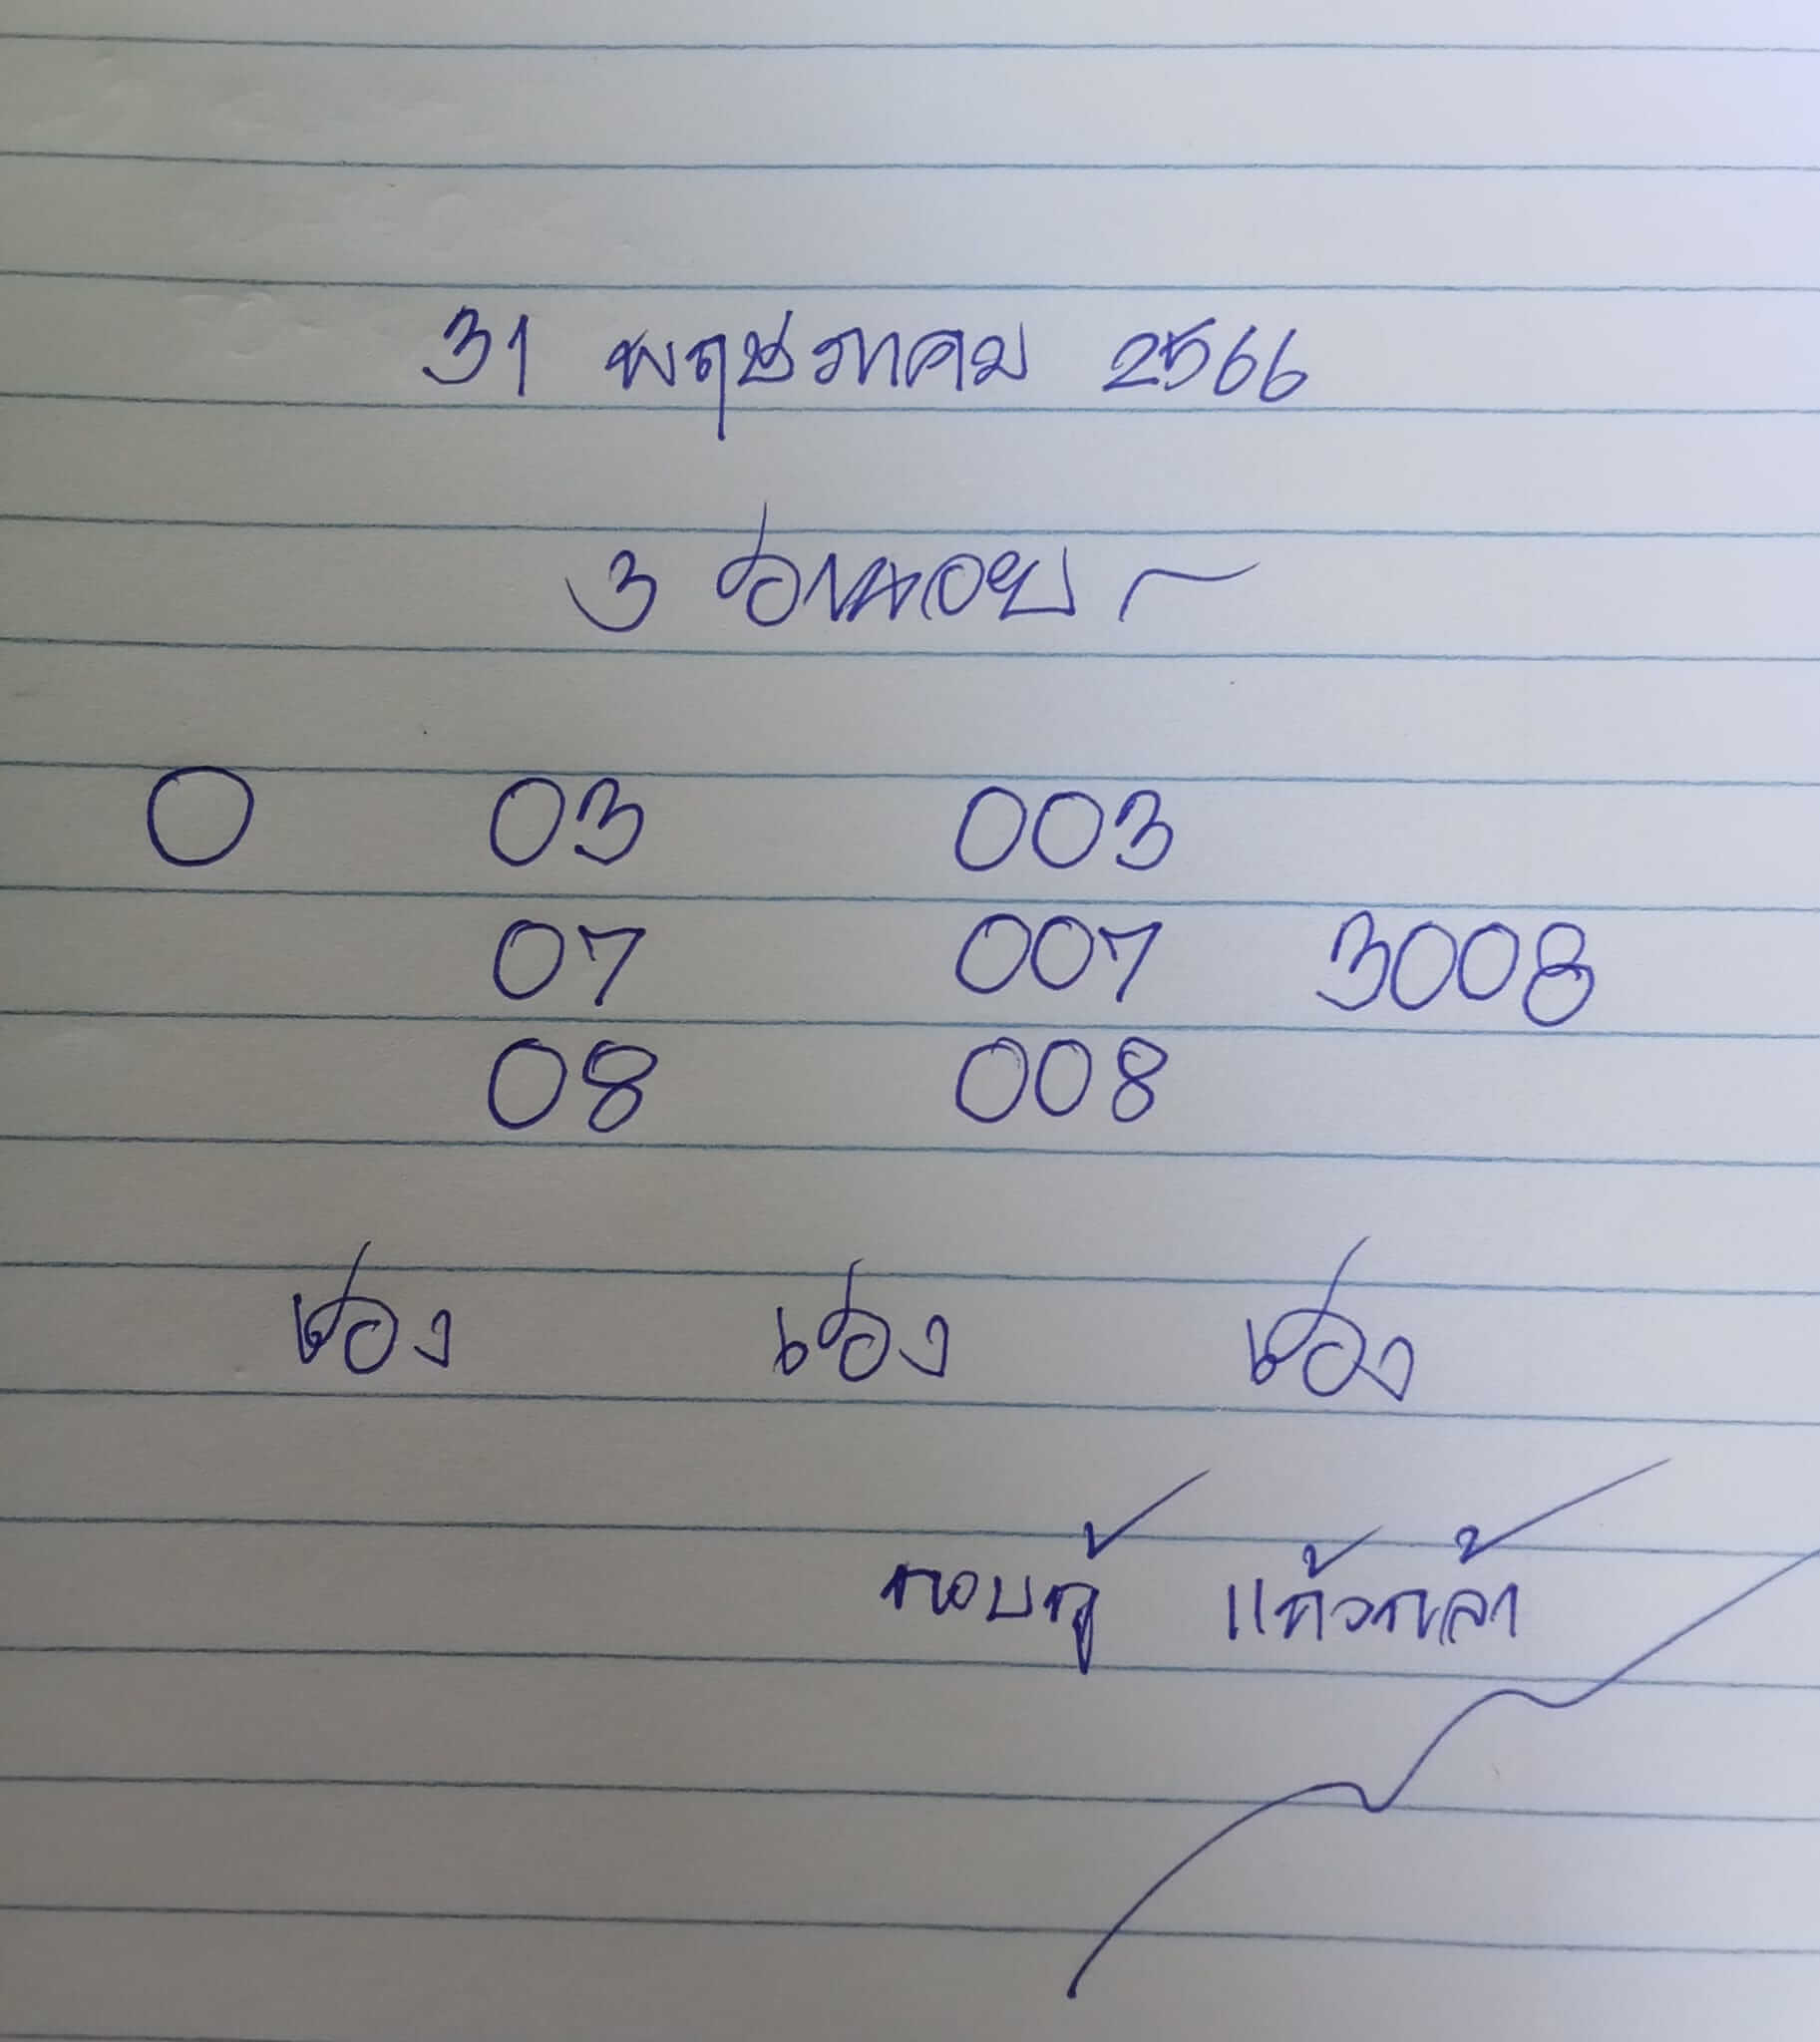 31 พฤษภาคม 2566
3
0 03 003
07 007 3008
08 008
ช่อง ช่อง ช่อง
กอบกู้ แก้วกล้า